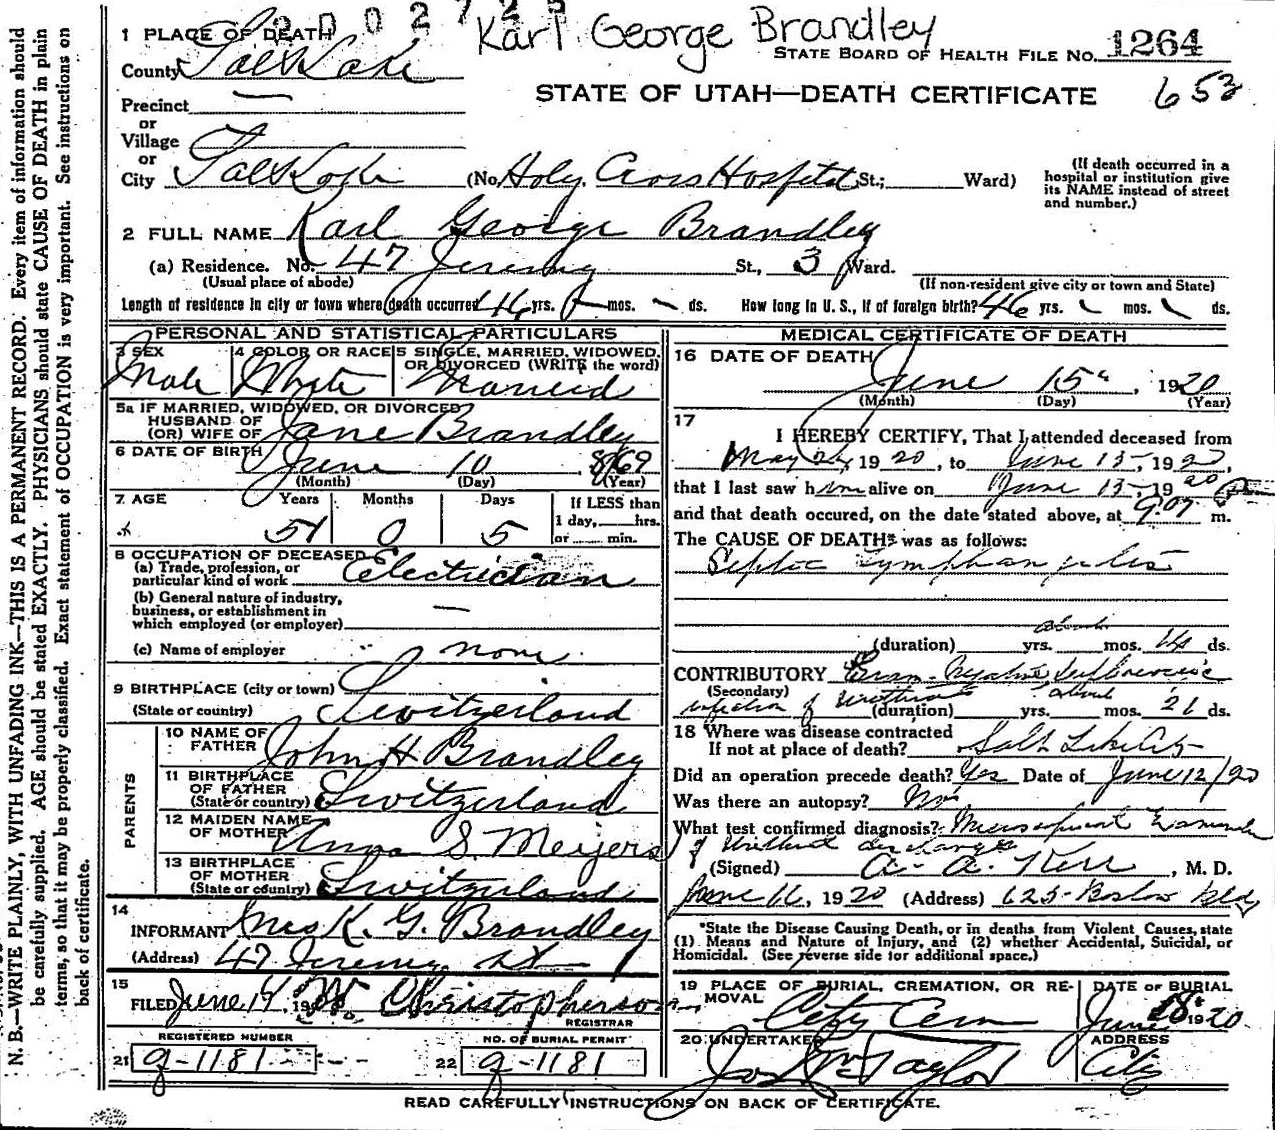 2 0 0 2 7 2 5
Karl George Brandley
1 PLACE OF DEATH
STATE BOARD OF HEALTH FILE No. 1264
County Salt Lake
STATE OF UTAH—DEATH CERTIFICATE 653
Precinct —
or
Village
or
City Salt Lake (No. Holy Cross Hospital St.; Ward)
(If death occurred in a hospital or institution give its NAME instead of street and number.)
2 FULL NAME Karl George Brandley
(a) Residence. No. 47 Jeremy St., 3 Ward.
(Usual place of abode) (If non-resident give city or town and State)
Length of residence in city or town where death occurred 46 yrs. — mos. — ds. How long in U. S., if of foreign birth? 46 yrs. mos. ds.
PERSONAL AND STATISTICAL PARTICULARS
3 SEX Male
4 COLOR OR RACE White
5 SINGLE, MARRIED, WIDOWED, OR DIVORCED (WRITE the word) Married
5a IF MARRIED, WIDOWED, OR DIVORCED
HUSBAND OF
(OR) WIFE OF Jane Brandley
6 DATE OF BIRTH June 10, 1869
(Month) (Day) (Year)
7 AGE Years Months Days If LESS than
51 0 5 1 day, hrs.
or min.
8 OCCUPATION OF DECEASED
(a) Trade, profession, or
particular kind of work Electrician
(b) General nature of industry,
business, or establishment in
which employed (or employer) —
(c) Name of employer none
9 BIRTHPLACE (city or town)
(State or country) Switzerland
PARENTS
10 NAME OF
FATHER John H Brandley
11 BIRTHPLACE
OF FATHER
(State or country) Switzerland
12 MAIDEN NAME
OF MOTHER Anna S. Meijers
13 BIRTHPLACE
OF MOTHER
(State or country) Switzerland
14
INFORMANT Mrs K. G. Brandley
(Address) 47 Jeremy St
15
FILED June 17, 19 W. Christopherson
REGISTRAR
REGISTERED NUMBER
21 g-1181
NO. OF BURIAL PERMIT
22 g-1181
MEDICAL CERTIFICATE OF DEATH
16 DATE OF DEATH
June 15", 1920
(Month) (Day) (Year)
17
I HEREBY CERTIFY, That I attended deceased from
May 24, 1920, to June 15, 1920,
that I last saw him alive on June 15, 1920
and that death occured, on the date stated above, at 9:07 P m.
The CAUSE OF DEATH* was as follows:
Septic Lymphangitis
(duration) yrs. about mos. 14 ds.
CONTRIBUTORY
(Secondary) infection of urethra
(duration) yrs. about mos. 21 ds.
18 Where was disease contracted
If not at place of death? Salt Lake City
Did an operation precede death? Yes Date of June 12/20
Was there an autopsy? No
What test confirmed diagnosis?
of Urethral discharge
(Signed) A. A. Kerr, M. D.
June 16, 1920 (Address) 625 Boston Bldg
*State the Disease Causing Death, or in deaths from Violent Causes, state
(1) Means and Nature of Injury, and (2) whether Accidental, Suicidal, or
Homicidal. (See reverse side for additional space.)
19 PLACE OF BURIAL, CREMATION, OR RE-
MOVAL
City Cem
DATE OF BURIAL
June 18 1920
20 UNDERTAKER
Jos Wm Taylor
ADDRESS
City
READ CAREFULLY INSTRUCTIONS ON BACK OF CERTIFICATE.
N. B.—WRITE PLAINLY, WITH UNFADING INK—THIS IS A PERMANENT RECORD. Every item of information should
be carefully supplied. AGE should be stated EXACTLY. PHYSICIANS should state CAUSE OF DEATH in plain
terms, so that it may be properly classified. Exact statement of OCCUPATION is very important. See instructions on
back of certificate.